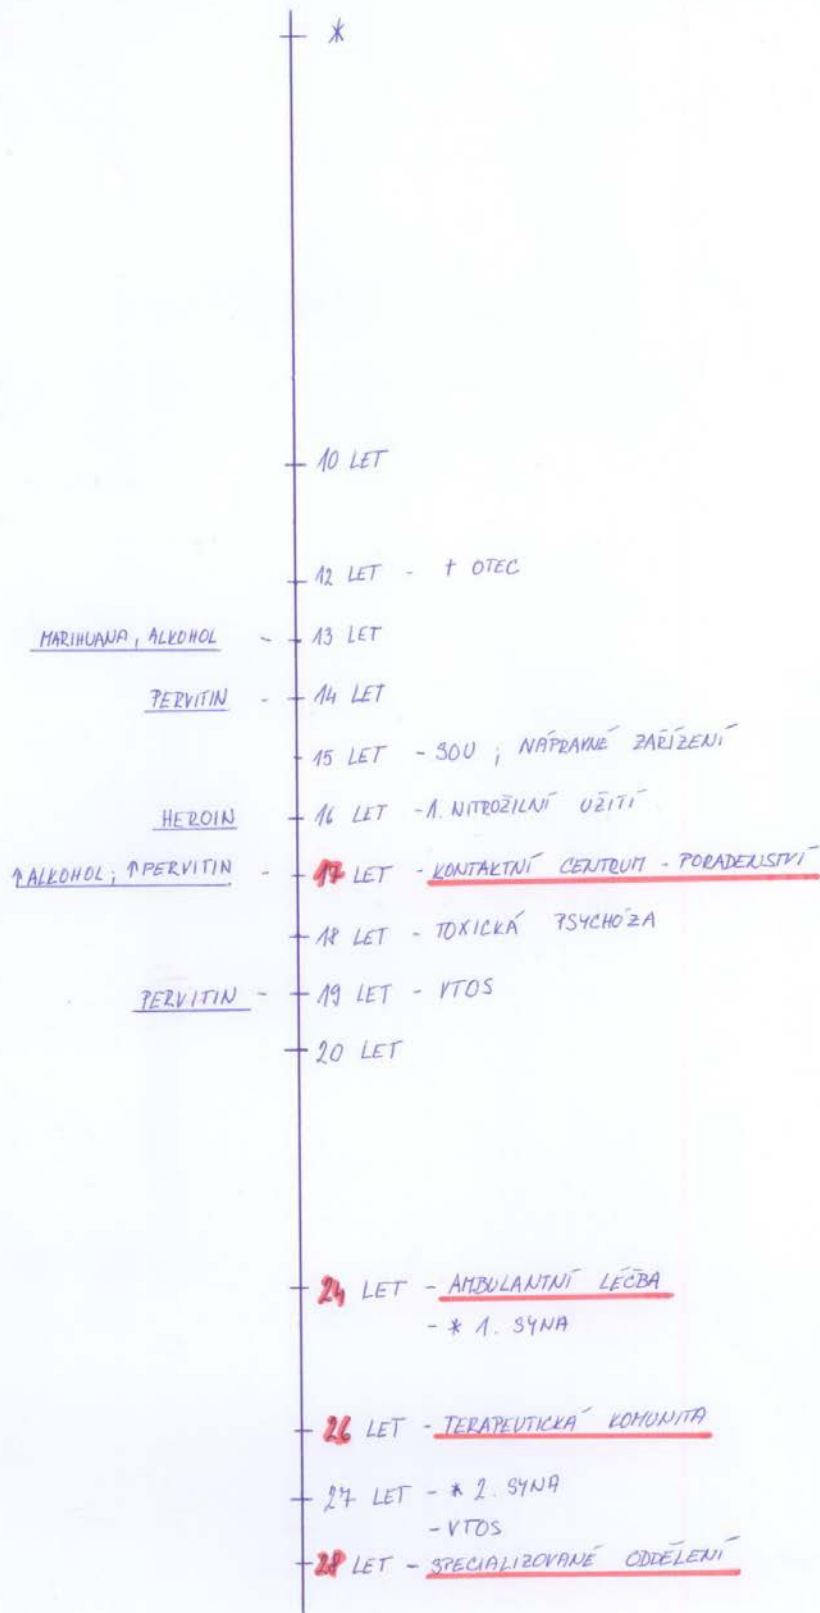 *
10 LET
12 LET - † OTEC
MARIHUANA, ALKOHOL - 13 LET
PERVITIN - 14 LET
15 LET - SOU ; NÁPRAVNÉ ZAŘÍZENÍ
HEROIN - 16 LET - 1. NITROŽILNÍ UŽITÍ
↑ALKOHOL; ↑PERVITIN - 17 LET - KONTAKTNÍ CENTRUM - PORADENSTVÍ
18 LET - TOXICKÁ PSYCHÓZA
PERVITIN - 19 LET - VTOS
20 LET
24 LET - AMBULANTNÍ LÉČBA
- * 1. SYNA
26 LET - TERAPEUTICKÁ KOMUNITA
27 LET - * 2. SYNA
- VTOS
28 LET - SPECIALIZOVANÉ ODDĚLENÍ